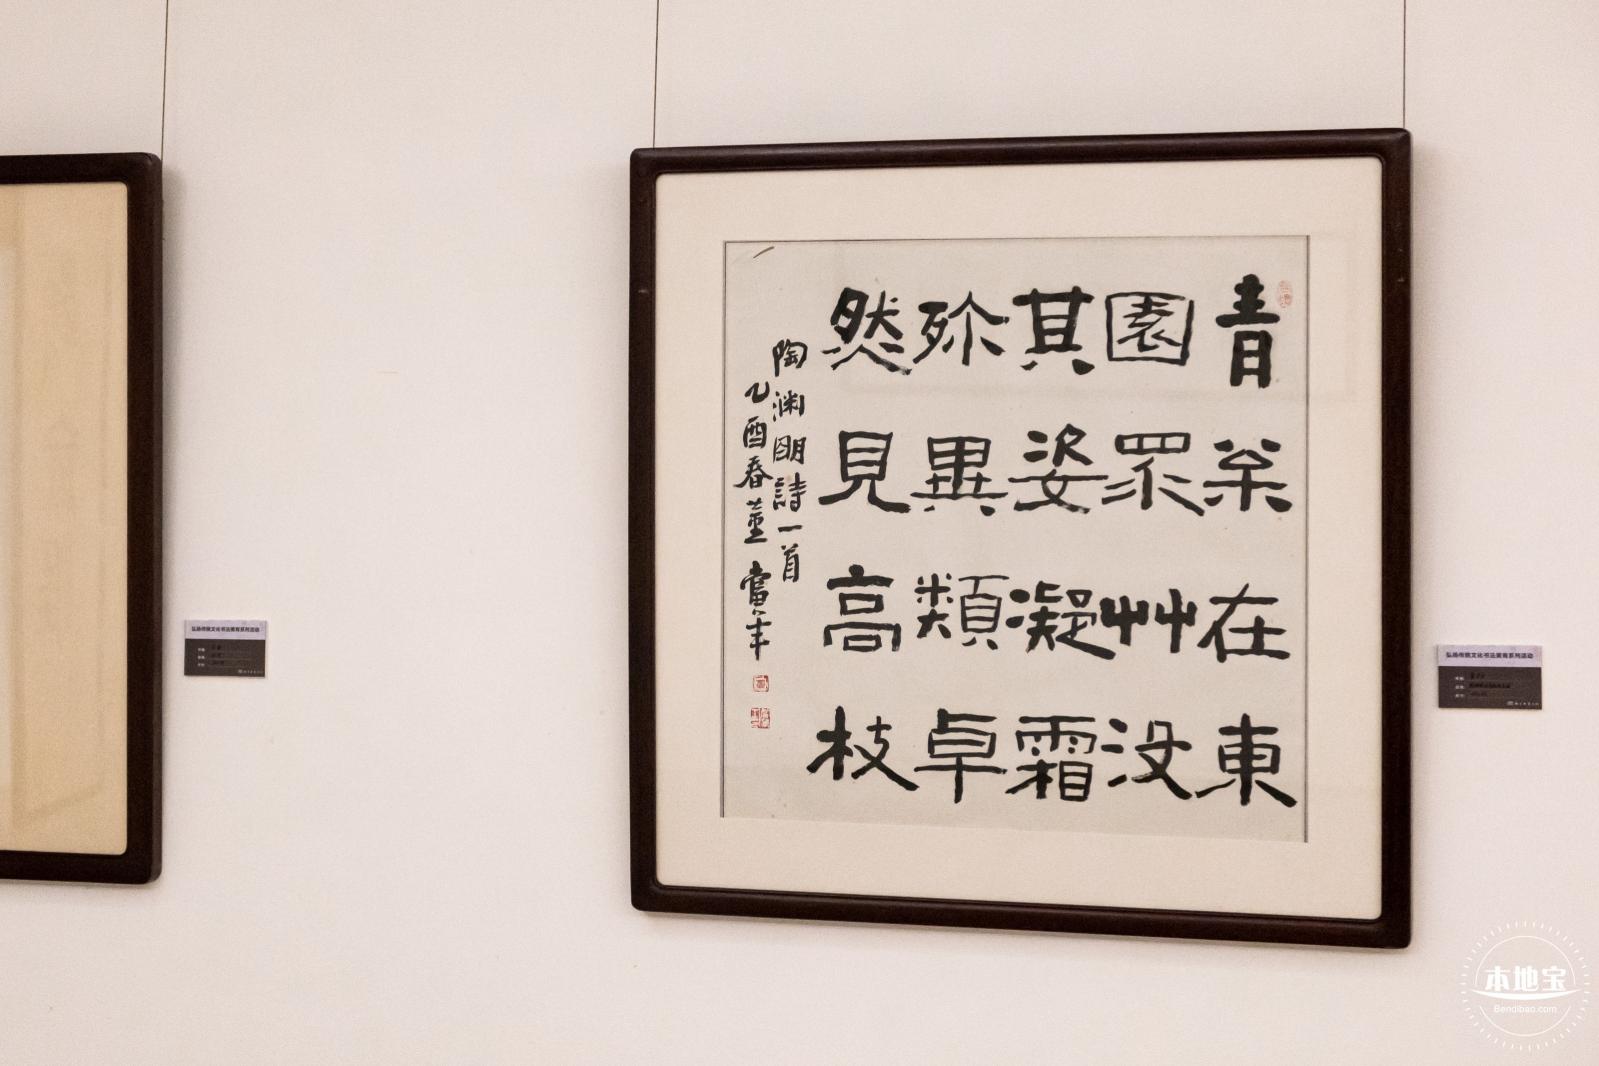 青枀在東
園眾艸没
其姿凝霜
殄異類卓
然見高枝
陶渊明詩一首
乙酉春董
當年
弘扬传统文化书法展育系列活动
弘扬传统文化书法展育系列活动
本地宝
Bendibao.com